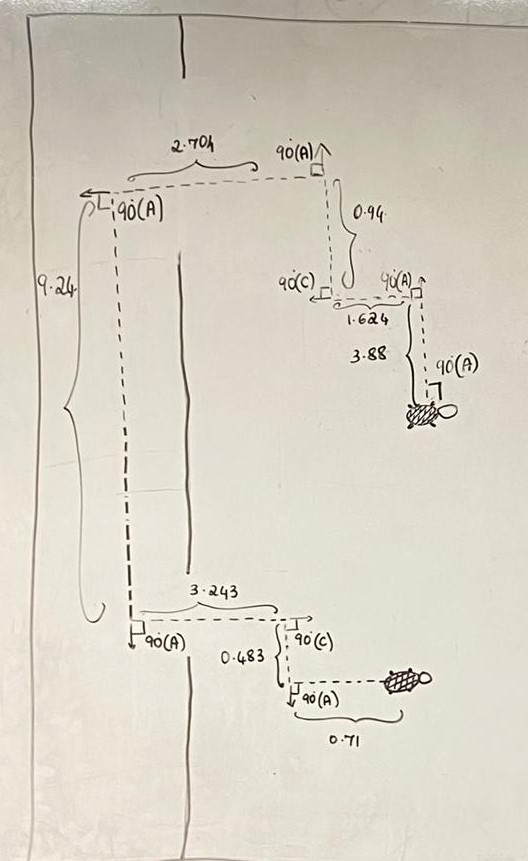 2.704
90°(A)
90°(A)
0.94
9.24
90°(C)
90°(A)
1.624
3.88
90°(A)
3.243
90°(A)
90°(C)
0.483
90°(A)
0.71